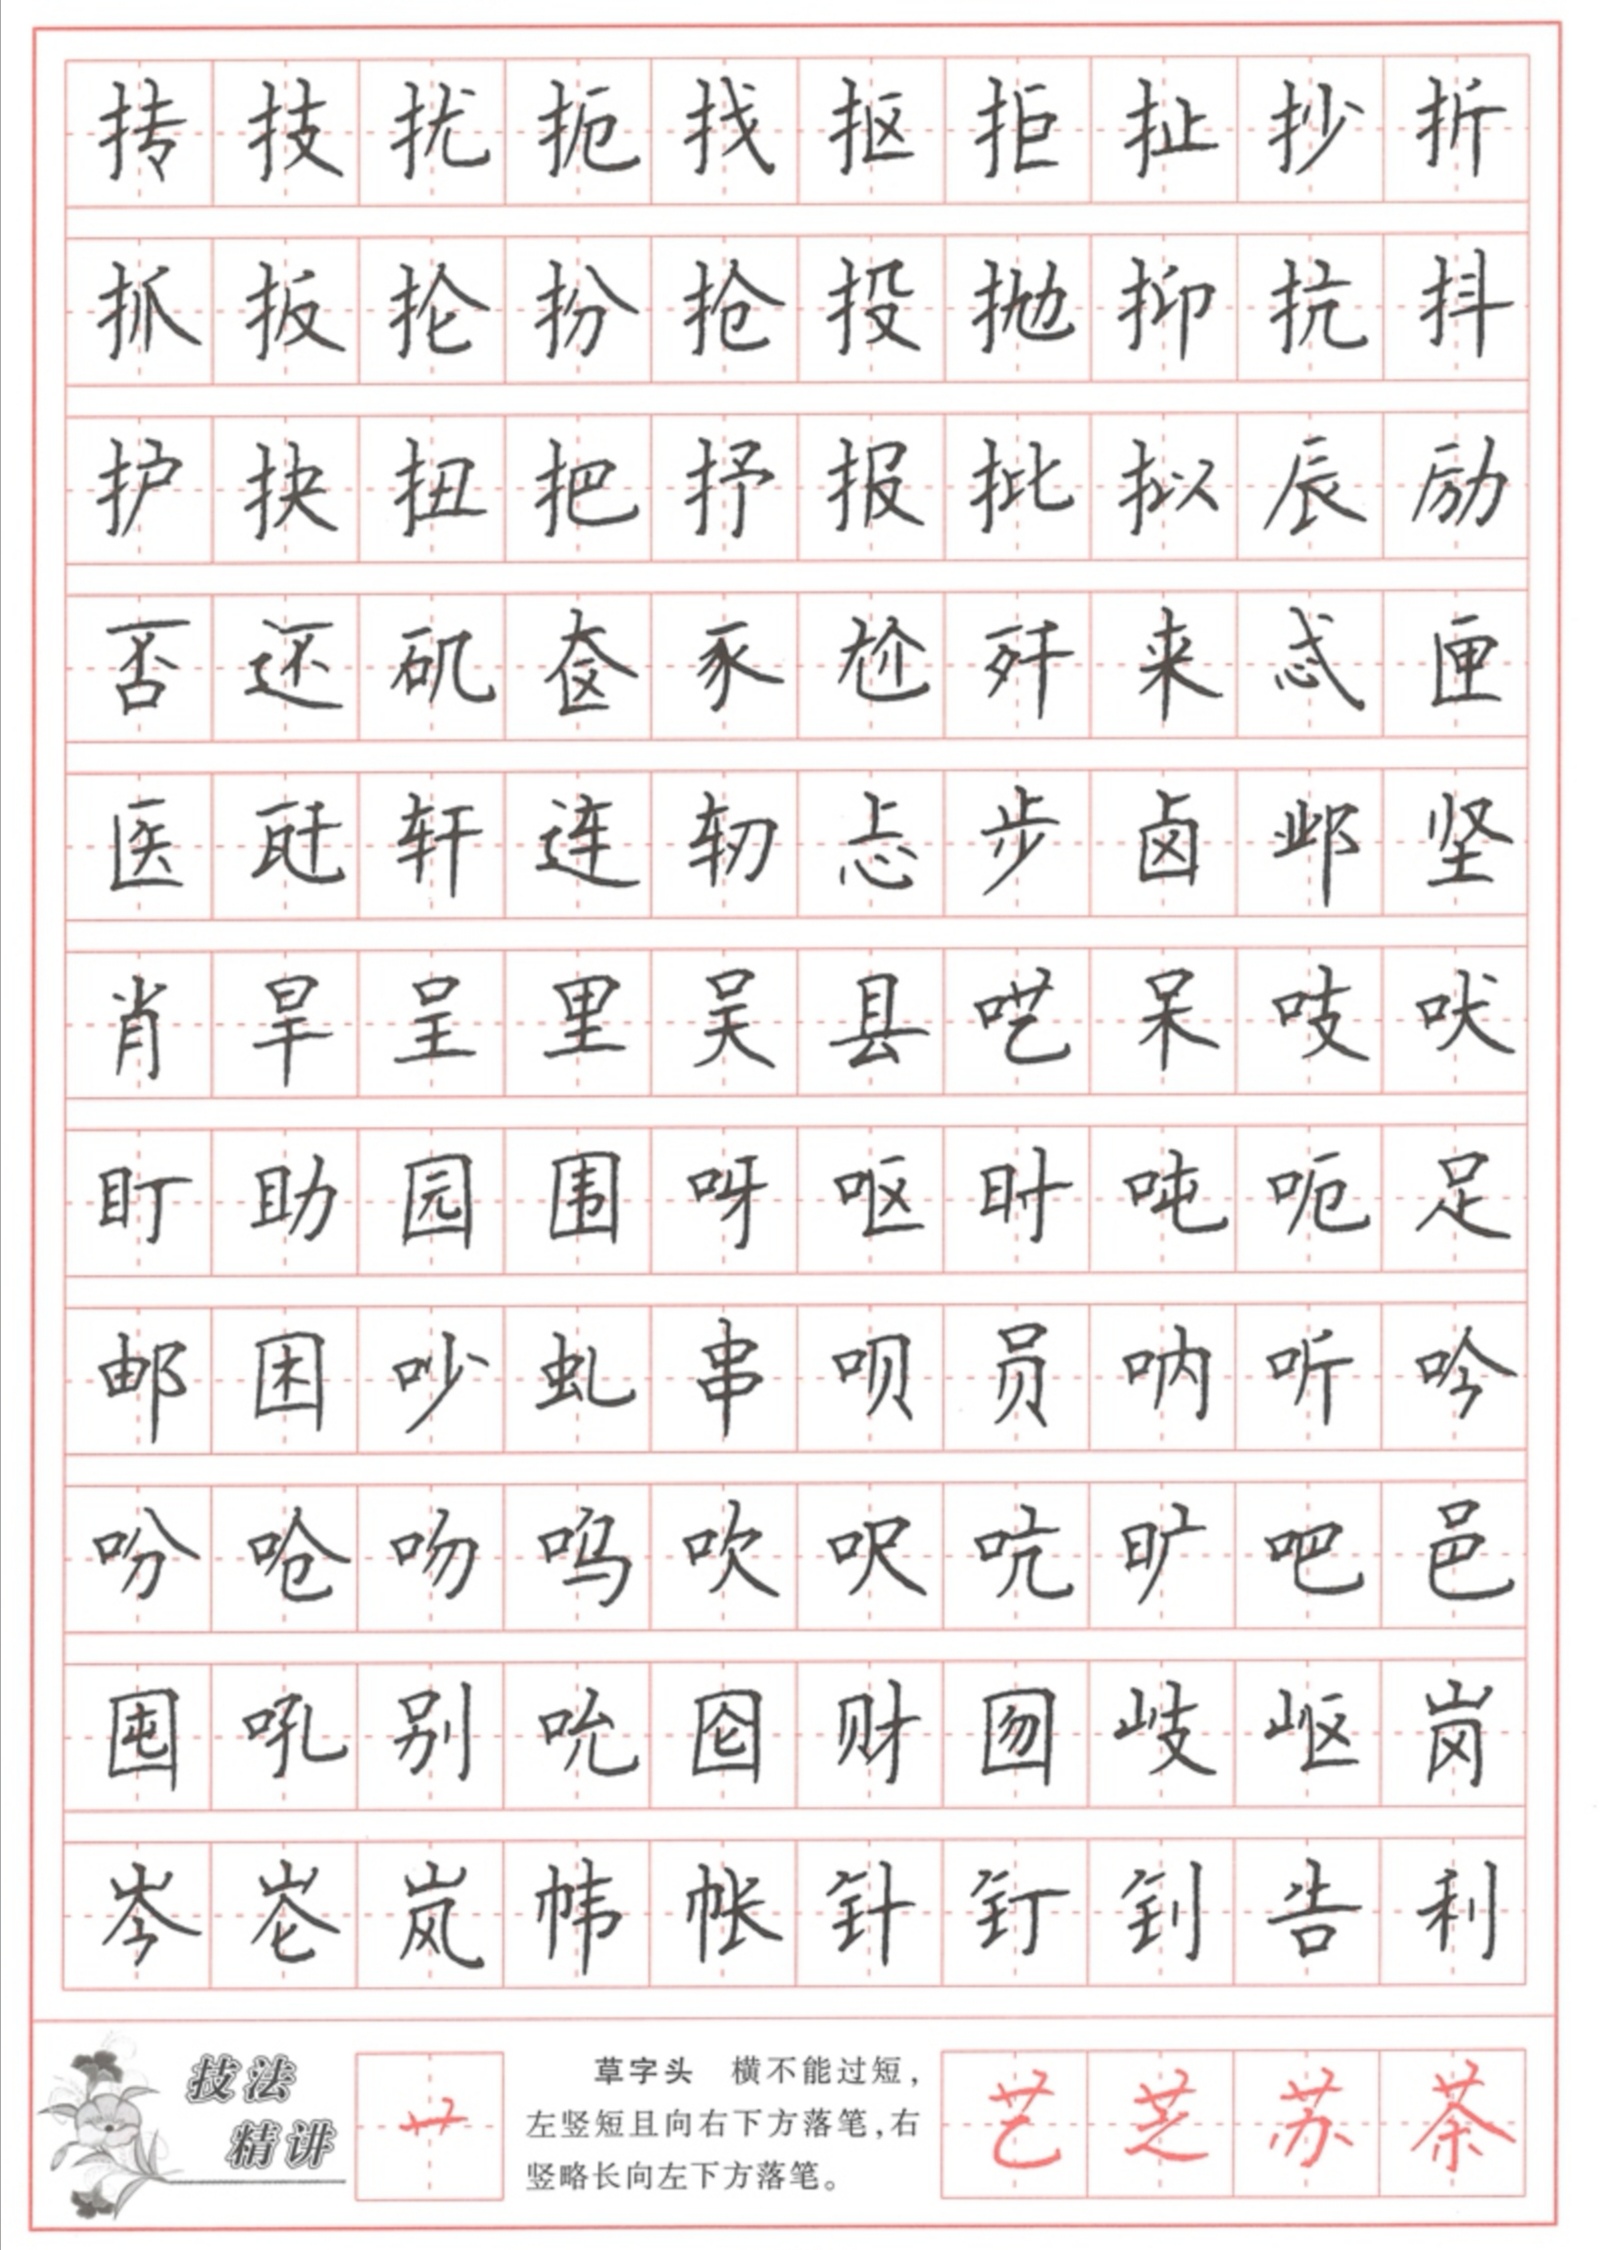 抟技扰扼找抠拒扯抄折
抓扳抡扮抢投抛抑抗抖
护抉扭把抒报批拟辰励
否还矶奁豕尬歼来忒匣
医瓩轩连轫忐步卤邺坚
肖旱呈里吴县呓呆吱吠
盯助园围呀呕旪吨呃足
邮困吵虬串呗员呐听吟
吩呛吻呜吹呎吭旷吧邑
囤吼别吮囵财囫岐岖岗
岑岺岚帏帐针钉钊告利
技法 草字头 横不能过短，
左竖短且向右下方落笔，右
精讲 竖略长向左下方落笔。
艹 艺芝苏茶